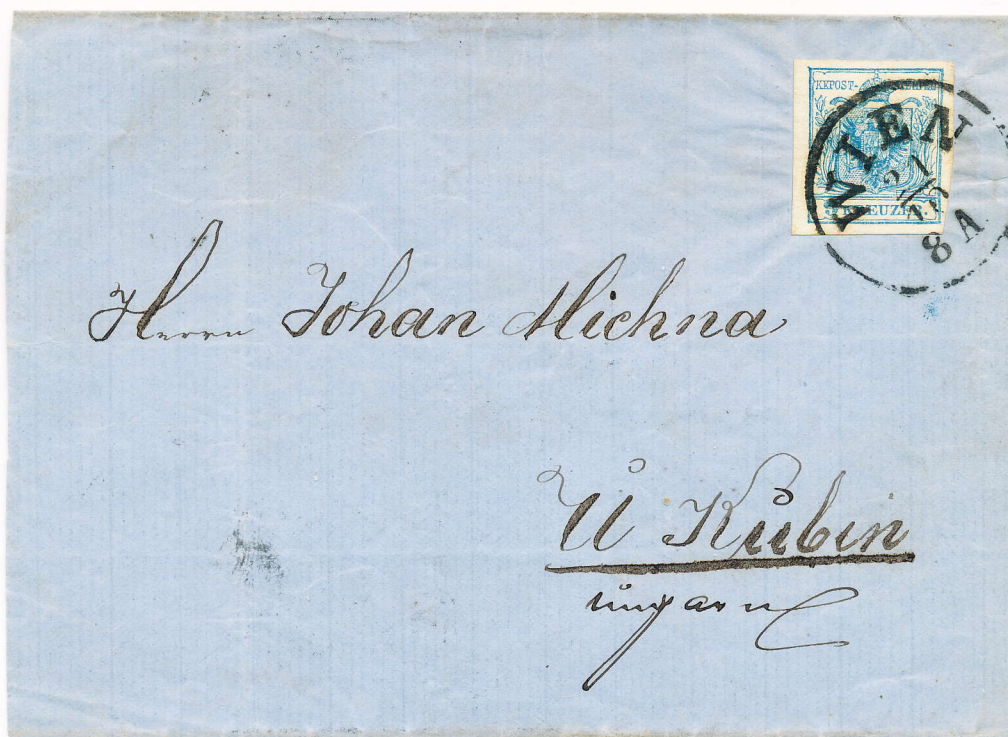 KKPOST-STEMPEL
WIEN
21
8 A
9 KREUZER
Herrn Johan Michna
U Kubin
ungarn